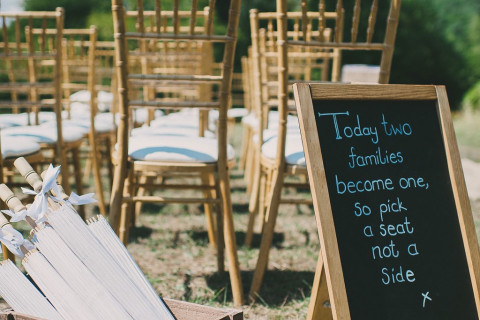 Today two
families
become one,
so pick
a seat
not a
Side
x